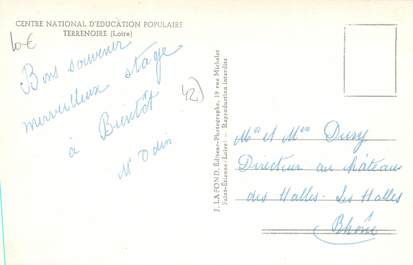 CENTRE NATIONAL D'EDUCATION POPULAIRE
TERRENOIRE (Loire)
10 €
Bons souvenir
merveilleux stage
à Bientôt
Mr Odin
42
J. LAFOND, Éditeur-Photographe, 19 rue Michelet
Saint-Étienne (Loire) - Reproduction interdite
Mr et Mme Dury
Directeur au château
des Halles. Les Halles
Rhône